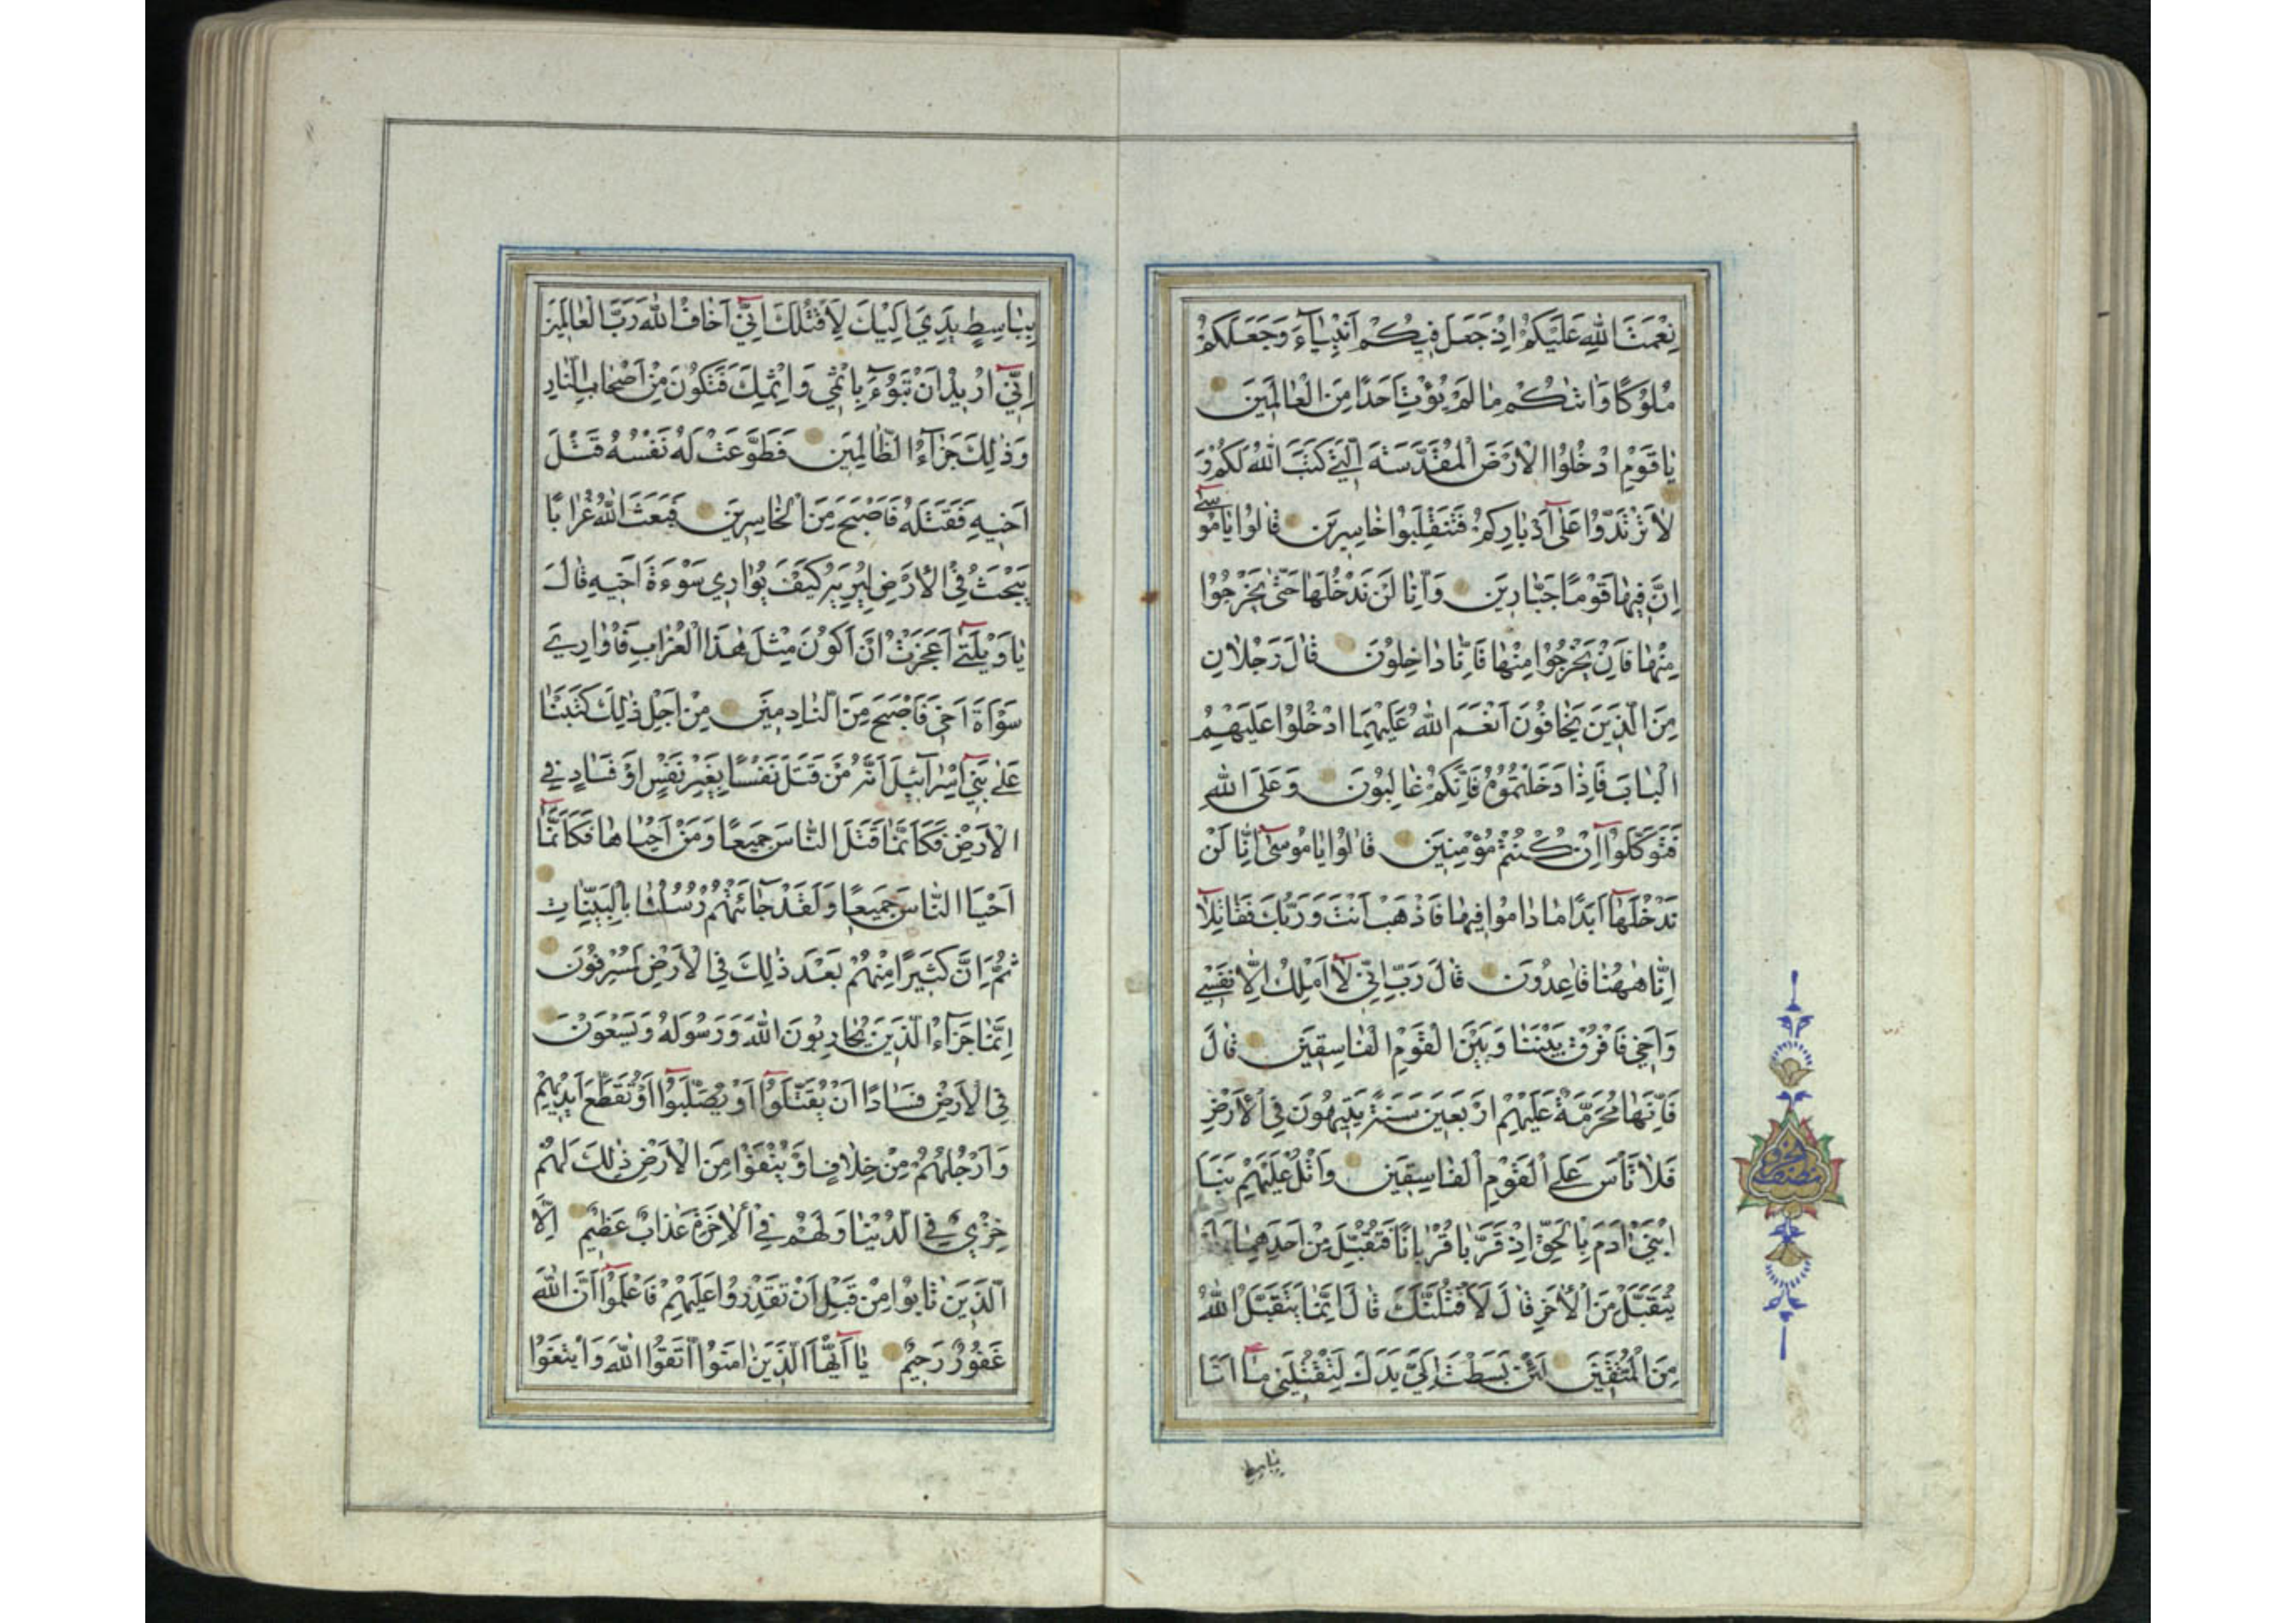 نِعْمَتَ اللّٰهِ عَلَيْكُمْ اِذْ جَعَلَ فِيكُمْ اَنْبِيَآءَ وَجَعَلَكُمْ
مُلُوكًا وَاٰتٰيكُمْ مٰا لَمْ يُؤْتِ اَحَدًا مِنَ الْعٰالَمِينَ
يٰا قَوْمِ ادْخُلُوا الْاَرْضَ الْمُقَدَّسَةَ الَّتِي كَتَبَ اللّٰهُ لَكُمْ وَ
لٰا تَرْتَدُّوا عَلىٰٓ اَدْبٰارِكُمْ فَتَنْقَلِبُوا خٰاسِرِينَ قٰالُوا يٰا مُوسىٰٓ
اِنَّ فِيهٰا قَوْمًا جَبّٰارِينَ وَاِنّٰا لَنْ نَدْخُلَهٰا حَتّٰى يَخْرُجُوا
مِنْهٰا فَاِنْ يَخْرُجُوا مِنْهٰا فَاِنّٰا دٰاخِلُونَ قٰالَ رَجُلٰانِ
مِنَ الَّذِينَ يَخٰافُونَ اَنْعَمَ اللّٰهُ عَلَيْهِمَا ادْخُلُوا عَلَيْهِمُ
الْبٰابَ فَاِذٰا دَخَلْتُمُوهُ فَاِنَّكُمْ غٰالِبُونَ وَعَلَى اللّٰهِ
فَتَوَكَّلُوٓا اِنْ كُنْتُمْ مُؤْمِنِينَ قٰالُوا يٰا مُوسىٰٓ اِنّٰا لَنْ
نَدْخُلَهٰٓا اَبَدًا مٰا دٰامُوا فِيهٰا فَاذْهَبْ اَنْتَ وَرَبُّكَ فَقٰاتِلٰٓا
اِنّٰا هٰهُنٰا قٰاعِدُونَ قٰالَ رَبِّ اِنِّي لٰٓا اَمْلِكُ اِلّٰا نَفْسِي
وَاَخِي فَافْرُقْ بَيْنَنٰا وَبَيْنَ الْقَوْمِ الْفٰاسِقِينَ قٰالَ
فَاِنَّهٰا مُحَرَّمَةٌ عَلَيْهِمْ اَرْبَعِينَ سَنَةً يَتِيهُونَ فِي الْاَرْضِ
فَلٰا تَاْسَ عَلَى الْقَوْمِ الْفٰاسِقِينَ وَاتْلُ عَلَيْهِمْ نَبَاَ
ابْنَيْ اٰدَمَ بِالْحَقِّ اِذْ قَرَّبٰا قُرْبٰانًا فَتُقُبِّلَ مِنْ اَحَدِهِمٰا وَلَمْ
يُتَقَبَّلْ مِنَ الْاٰخَرِ قٰالَ لَاَقْتُلَنَّكَ قٰالَ اِنَّمٰا يَتَقَبَّلُ اللّٰهُ
مِنَ الْمُتَّقِينَ لَئِنْ بَسَطْتَ اِلَيَّ يَدَكَ لِتَقْتُلَنِي مٰٓا اَنَا
بباسط
بِبٰاسِطٍ يَدِيَ اِلَيْكَ لِاَقْتُلَكَ اِنِّيٓ اَخٰافُ اللّٰهَ رَبَّ الْعٰالَمِينَ
اِنِّيٓ اُرِيدُ اَنْ تَبُوٓءَ بِاِثْمِي وَاِثْمِكَ فَتَكُونَ مِنْ اَصْحٰابِ النّٰارِ
وَذٰلِكَ جَزٰآءُ الظّٰالِمِينَ فَطَوَّعَتْ لَهُ نَفْسُهُ قَتْلَ
اَخِيهِ فَقَتَلَهُ فَاَصْبَحَ مِنَ الْخٰاسِرِينَ فَبَعَثَ اللّٰهُ غُرٰابًا
يَبْحَثُ فِي الْاَرْضِ لِيُرِيَهُ كَيْفَ يُوٰارِي سَوْءَةَ اَخِيهِ قٰالَ
يٰا وَيْلَتىٰٓ اَعَجَزْتُ اَنْ اَكُونَ مِثْلَ هٰذَا الْغُرٰابِ فَاُوٰارِيَ
سَوْاَةَ اَخِي فَاَصْبَحَ مِنَ النّٰادِمِينَ مِنْ اَجْلِ ذٰلِكَ كَتَبْنٰا
عَلىٰ بَنِيٓ اِسْرٰآئِيلَ اَنَّهُ مَنْ قَتَلَ نَفْسًا بِغَيْرِ نَفْسٍ اَوْ فَسٰادٍ فِي
الْاَرْضِ فَكَاَنَّمٰا قَتَلَ النّٰاسَ جَمِيعًا وَمَنْ اَحْيٰاهٰا فَكَاَنَّمٰٓا
اَحْيَا النّٰاسَ جَمِيعًا وَلَقَدْ جٰٓائَتْهُمْ رُسُلُنٰا بِالْبَيِّنٰاتِ
ثُمَّ اِنَّ كَثِيرًا مِنْهُمْ بَعْدَ ذٰلِكَ فِي الْاَرْضِ لَمُسْرِفُونَ
اِنَّمٰا جَزٰآءُ الَّذِينَ يُحٰارِبُونَ اللّٰهَ وَرَسُولَهُ وَيَسْعَوْنَ
فِي الْاَرْضِ فَسٰادًا اَنْ يُقَتَّلُوٓا اَوْ يُصَلَّبُوٓا اَوْ تُقَطَّعَ اَيْدِيهِمْ
وَاَرْجُلُهُمْ مِنْ خِلٰافٍ اَوْ يُنْفَوْا مِنَ الْاَرْضِ ذٰلِكَ لَهُمْ
خِزْيٌ فِي الدُّنْيٰا وَلَهُمْ فِي الْاٰخِرَةِ عَذٰابٌ عَظِيمٌ اِلَّا
الَّذِينَ تٰابُوا مِنْ قَبْلِ اَنْ تَقْدِرُوا عَلَيْهِمْ فَاعْلَمُوٓا اَنَّ اللّٰهَ
غَفُورٌ رَحِيمٌ يٰٓا اَيُّهَا الَّذِينَ اٰمَنُوا اتَّقُوا اللّٰهَ وَابْتَغُوٓا